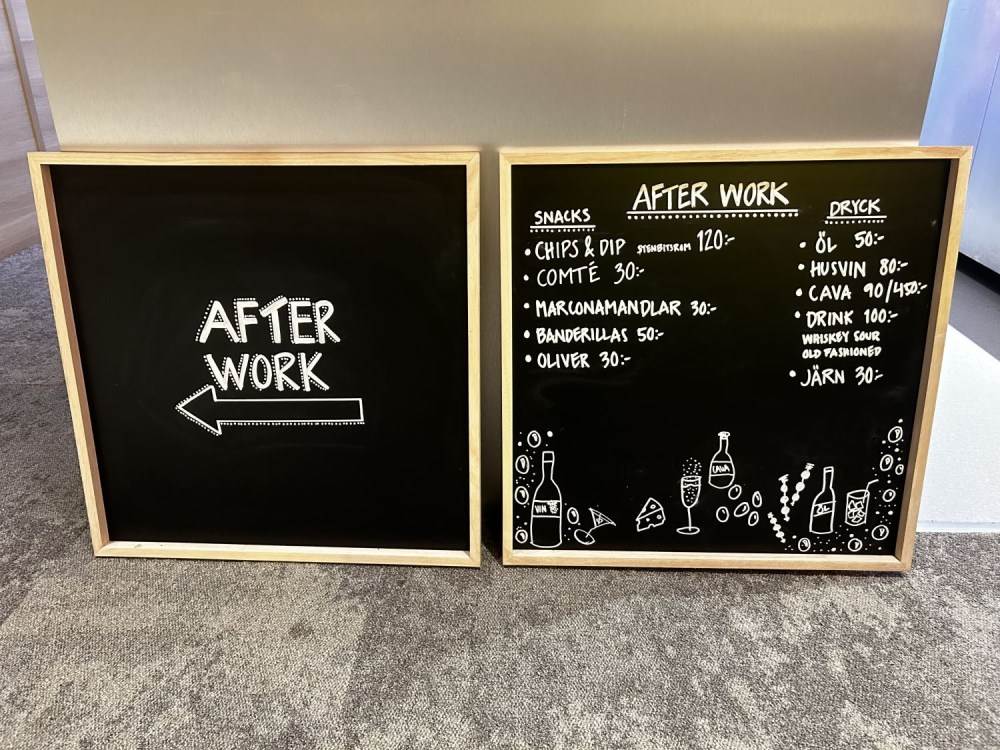 AFTER
WORK
AFTER WORK
SNACKS
• CHIPS & DIP STENBITSROM 120:-
• COMTÉ 30:-
• MARCONAMANDLAR 30:-
• BANDERILLAS 50:-
• OLIVER 30:-
DRYCK
• ÖL 50:-
• HUSVIN 80:-
• CAVA 90/450:-
• DRINK 100:-
WHISKEY SOUR
OLD FASHIONED
• JÄRN 30:-
VIN
CAVA
ÖL